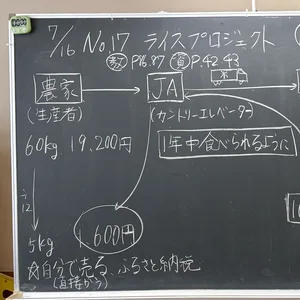 7/16 No.17 ライスプロジェクト
教 P.86.87 資 P.42 43
農家 JA
(生産者) (カントリーエレベーター)
60kg 19,200円 1年中食べられるように
÷12
1600円
5kg
☆自分で売る、ふるさと納税
(直接かう)